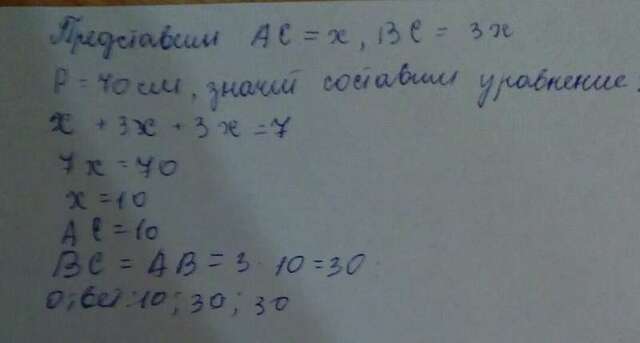 Представим AC = x, BC = 3x
P = 70 см, значит составим уравнение.
x + 3x + 3x = 7
7x = 70
x = 10
AC = 10
BC = AB = 3 · 10 = 30
Ответ: 10; 30; 30